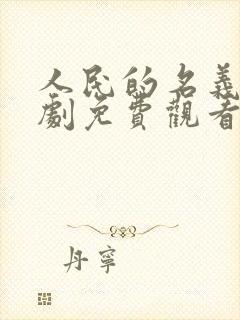 人民的名義
劇免費觀看
丹寧